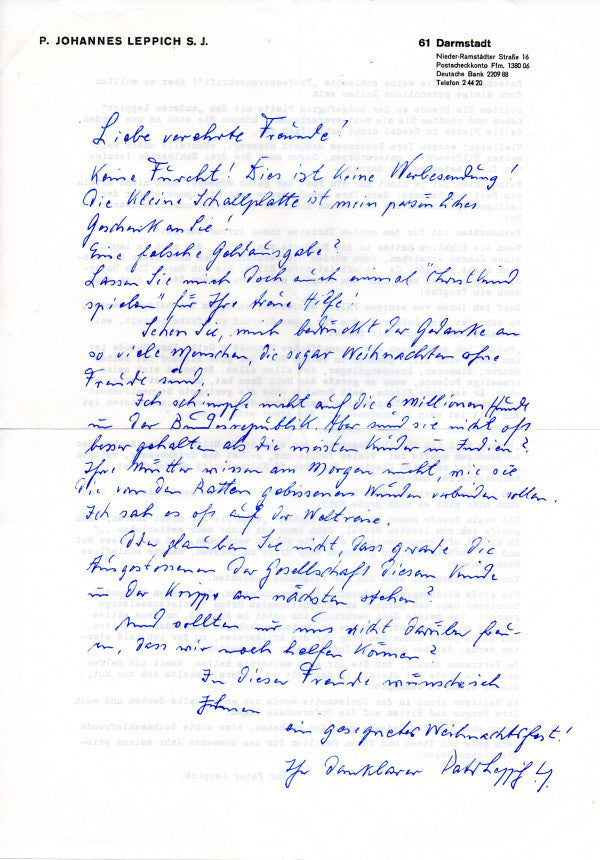 P. JOHANNES LEPPICH S. J.
61 Darmstadt
Nieder-Ramstädter Straße 16
Postscheckkonto Ffm. 1380 06
Deutsche Bank 2209 88
Telefon 2 44 20
Liebe verehrte Freunde!
Keine Furcht! Dies ist keine Werbesendung!
Die kleine Schallplatte ist mein persönliches
Geschenk an Sie!
Eine falsche Geldausgabe?
Lassen Sie mich doch auch einmal "Christkind
spielen" für Ihre treue Hilfe!
Sehen Sie, mich bedrückt der Gedanke an
so viele Menschen, die sogar Weihnachten ohne
Freude sind.
Ich schimpfe nicht auf die 6 Millionen Hunde
in der Bundesrepublik. Aber sind sie nicht oft
besser gehalten als die meisten Kinder in Indien?
Ihre Mütter wissen am Morgen nicht, wie sie
die von den Ratten gebissenen Wunden verbinden sollen.
Ich sah es oft auf der Weltreise.
Oder glauben Sie nicht, dass gerade die
Ausgestossenen der Gesellschaft diesem Kinde
in der Krippe am nächsten stehen?
Und sollten wir uns nicht darüber freu-
en, dass wir noch helfen können?
In dieser Freude wünsche ich
Ihnen
ein gesegnetes Weihnachtsfest!
Ihr dankbarer Pater Leppich SJ.